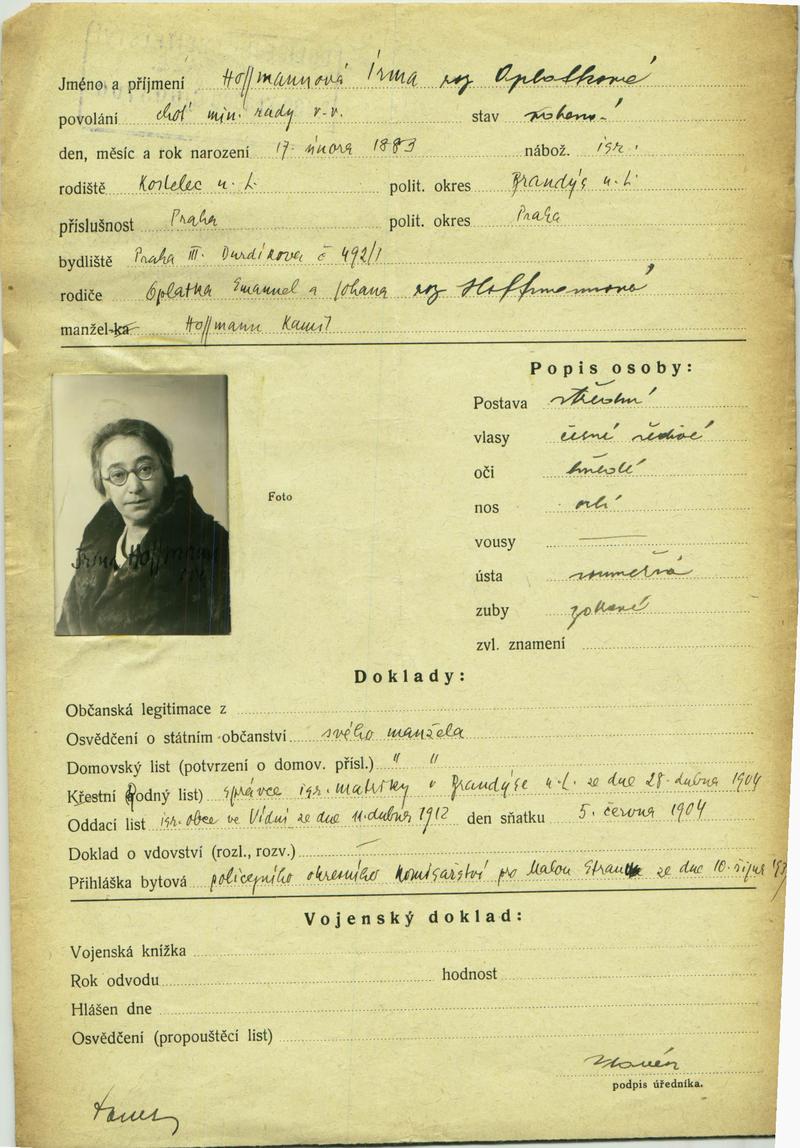 Jméno a příjmení Hoffmannová Irma roz Oplatková
povolání choť min. rady v.v. stav
den, měsíc a rok narození 17. února 1883 nábož. isr.
rodiště Kostelec n. L. polit. okres Brandýs n. L.
příslušnost Praha polit. okres Praha
bydliště Praha III. Durdíkova č 492/1
rodiče Oplatka Emanuel a Johana roz Hoffmannová
manžel-ka Hoffmann Kamil
Popis osoby:
Postava střední
vlasy černé šedivé
oči hnědé
Foto
nos orlí
vousy —
Irma Hoffmann
ústa souměrná
zuby
zvl. znamení
Doklady:
Občanská legitimace z
Osvědčení o státním občanství svého manžela
Domovský list (potvrzení o domov. přísl.) " "
Křestní (Rodný list) správce isr. matriky v Brandýse n. L. ze dne 28. dubna 1904
Oddací list isr. obce ve Vídni ze dne 11. dubna 1912 den sňatku 5. června 1904
Doklad o vdovství (rozl., rozv.) —
Přihláška bytová policejního okresního komisařství pro Malou Stranu ze dne 10. října
Vojenský doklad:
Vojenská knížka
Rok odvodu hodnost
Hlášen dne
Osvědčení (propouštěcí list)
podpis úředníka.